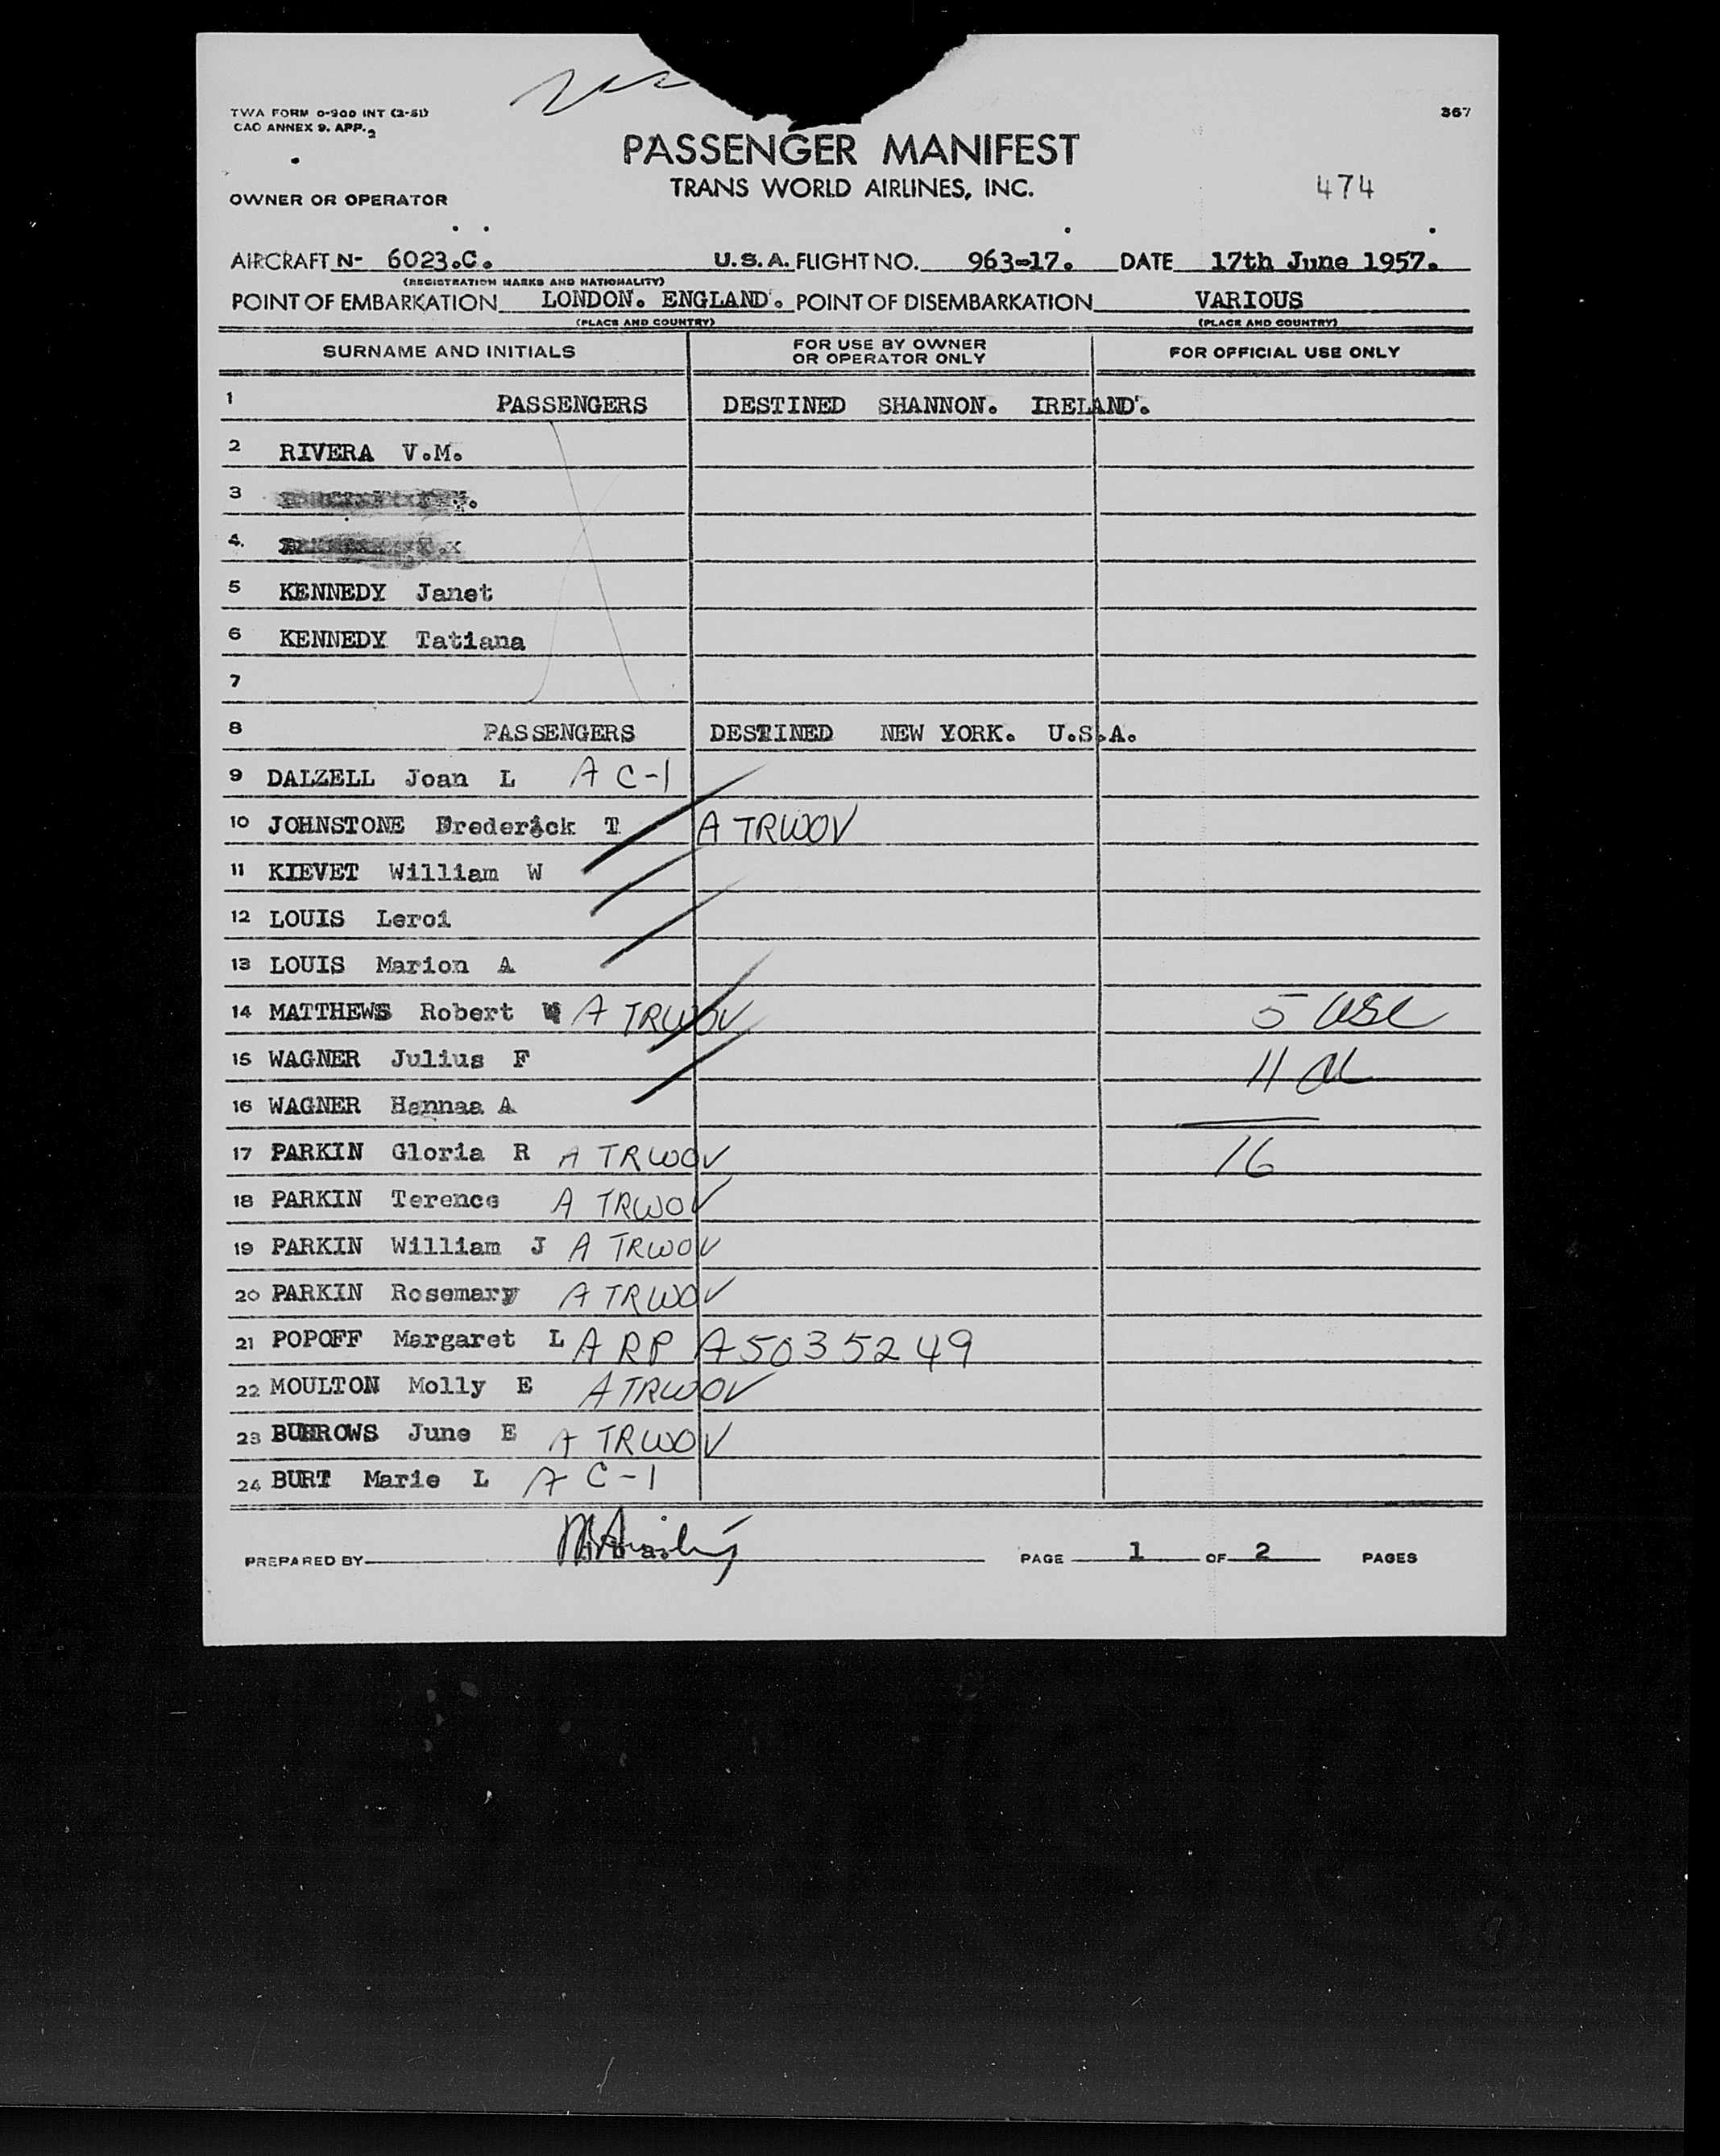 TWA FORM 0-900 INT (2-51)
CAO ANNEX 9. APP. 2
367
PASSENGER MANIFEST
TRANS WORLD AIRLINES, INC.
474
OWNER OR OPERATOR
AIRCRAFT N- 6023.C. U.S.A. FLIGHT NO. 963-17. DATE 17th June 1957.
(REGISTRATION MARKS AND NATIONALITY)
POINT OF EMBARKATION LONDON. ENGLAND. POINT OF DISEMBARKATION VARIOUS
(PLACE AND COUNTRY) (PLACE AND COUNTRY)
SURNAME AND INITIALS FOR USE BY OWNER OR OPERATOR ONLY FOR OFFICIAL USE ONLY
1 PASSENGERS DESTINED SHANNON. IRELAND.
2 RIVERA V.M.
3
4.
5 KENNEDY Janet
6 KENNEDY Tatiana
7
8 PASSENGERS DESTINED NEW YORK. U.S.A.
9 DALZELL Joan L A C-1
10 JOHNSTONE Frederick T A TRWOV
11 KIEVET William W
12 LOUIS Leroi
13 LOUIS Marion A
14 MATTHEWS Robert W A TRWOV 5 USC
15 WAGNER Julius F 11 al
16 WAGNER Hannaa A
17 PARKIN Gloria R A TRWOV 16
18 PARKIN Terence A TRWOV
19 PARKIN William J A TRWOV
20 PARKIN Rosemary A TRWOV
21 POPOFF Margaret L A RP A5035249
22 MOULTON Molly E A TRWOV
23 BURROWS June E A TRWOV
24 BURT Marie L A C-1
PREPARED BY PAGE 1 OF 2 PAGES